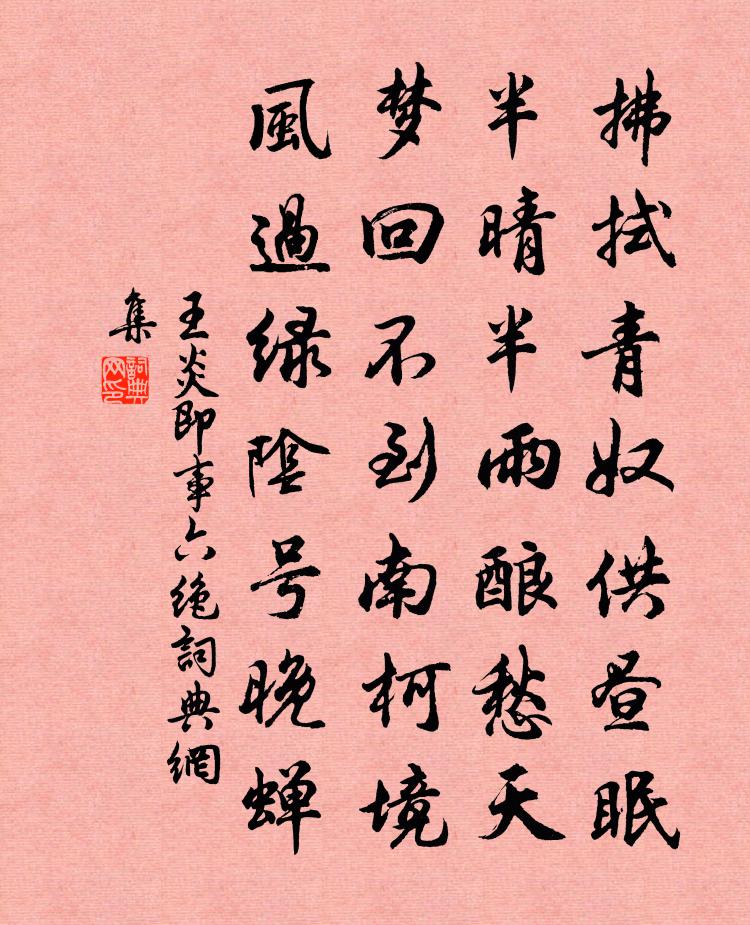 拂拭青奴供昼眠
半晴半雨酿愁天
梦回不到南柯境
風過绿陰号晚蝉
王炎即事六绝詞典網
集
詞典网印